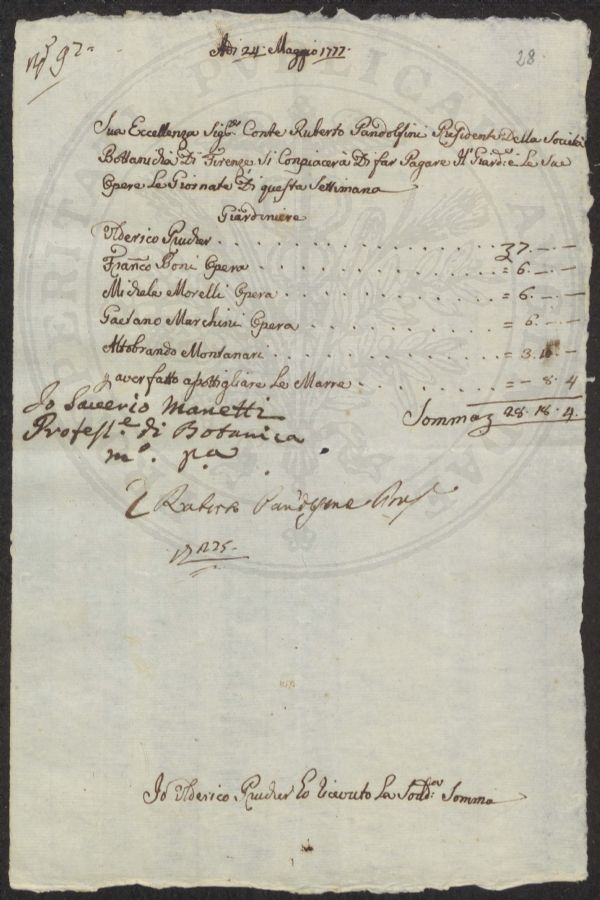 N° 92
Adi 24: Maggio 1777
28
Sua Eccellenza Sig:re Conte Ruberto Pandolfini Presidente Della Società
Bottanicha Di Firenze Si Conpiacerà Di far Pagare Il Giard:e Le Sue
Opere Le Giornate Di questa Settimana
Giardiniere
Ulderico Prucher . . . . . . . . . . . . 37.—.—
Franco Boni Opera . . . . . . . . . . . = 6.—.—
Michele Morelli Opera . . . . . . . . . = 6.—.—
Gaetano Marchini Opera . . . . . . . . = 6.—.—
Altobrando Montanari . . . . . . . . . = 3.10.—
p aver fatto apottigliare Le Marre . . . . = —.8.4
Somma 28.18.4
Io Saverio Manetti
Profess.e di Botanica
m.o p.a
Io Ulderico Prucher Ho ricevuto La Sodd:a Somma